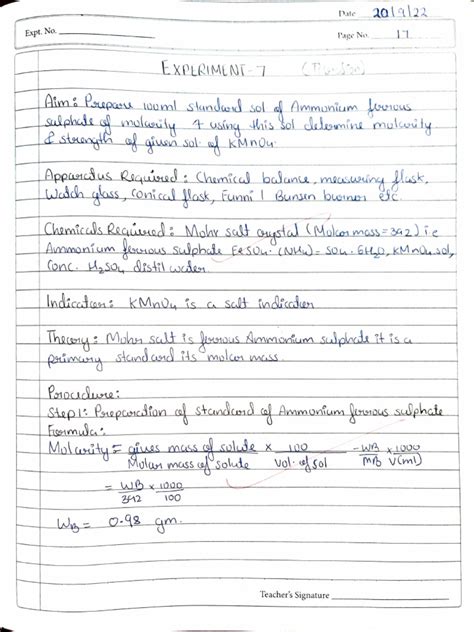 Date 20/9/22
Expt. No.
Page No. 17
EXPERIMENT-7
Aim: Prepare 100ml standard sol of Ammonium ferrous
sulphate of molarity & using this sol determine molarity
& strength of given sol. of KMnO4.
Apparatus Required: Chemical balance, measuring flask,
Watch glass, conical flask, Funnl l Bunsen burner etc.
Chemicals Required: Mohr salt crystal (Molar mass = 392) i.e
Ammonium ferrous sulphate FeSO4. (NH4)= SO4. 6H2O, KMnO4 sol,
Conc. H2SO4 distil water.
Indicator: KMnO4 is a salt indicator
Theory: Mohr salt is ferrous Ammonium sulphate it is a
primary standard its molar mass.
Procedure:
Step1: Preparation of standard of Ammonium ferrous sulphate
Formula:
Molarity = given mass of solute × 100 - WB × 1000
Molar mass of solute Vol. of sol MB V(ml)
= WB × 1000
392 100
WB = 0.98 gm.
Teacher's Signature